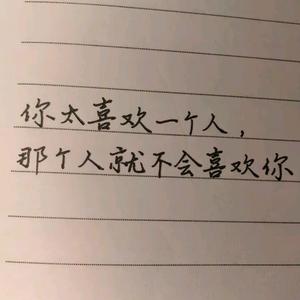 你太喜欢一个人，
那个人就不会喜欢你